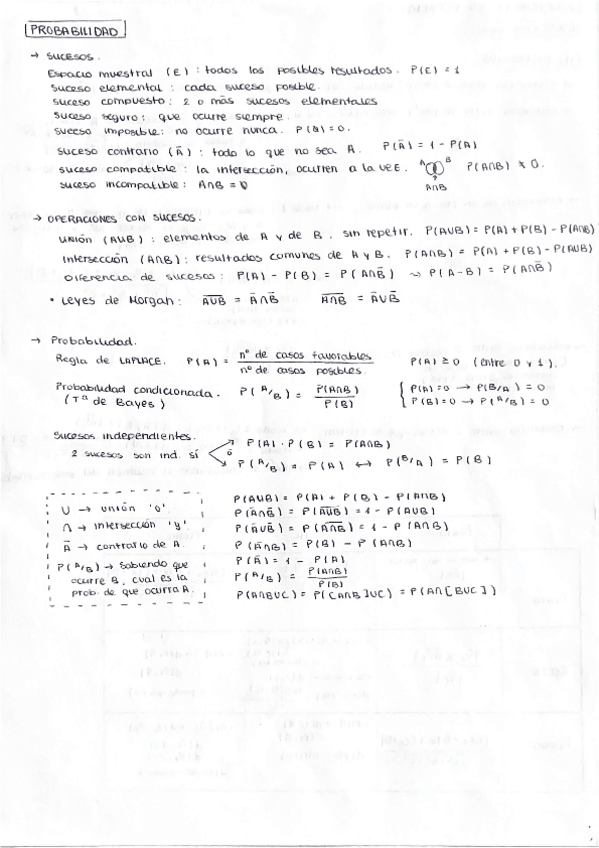 PROBABILIDAD
→ SUCESOS.
Espacio muestral (E) : todos los posibles resultados. P(E) = 1
suceso elemental : cada suceso posible.
suceso compuesto : 2 o más sucesos elementales
suceso seguro : que ocurre siempre.
suceso imposible : no ocurre nunca. P(Ø) = 0.
suceso contrario (Ā) : todo lo que no sea A. P(Ā) = 1 - P(A)
suceso compatible : la intersección, ocurren a la vez. A B P(A∩B) ≠ 0.
A∩B
suceso incompatible : A∩B = Ø
→ OPERACIONES CON SUCESOS.
UNIÓN (AUB) : elementos de A y de B, sin repetir. P(AUB) = P(A) + P(B) - P(A∩B)
Intersección (A∩B) : resultados comunes de A y B. P(A∩B) = P(A) + P(B) - P(AUB)
Diferencia de sucesos : P(A) - P(B) = P(A∩B̄) ⤳ P(A-B) = P(A∩B̄)
• Leyes de Morgan : A̅U̅B̅ = Ā∩B̄ A̅∩̅B̅ = ĀUB̄
→ Probabilidad.
Regla de LAPLACE. P(A) = nº de casos favorables / nº de casos posibles. P(A) ≥ 0 (entre 0 y 1).
Probabilidad condicionada. P(A/B) = P(A∩B) / P(B) { P(A) = 0 → P(B/A) = 0
(Tª de Bayes) P(B) = 0 → P(A/B) = 0
Sucesos independientes.
2 sucesos son ind. sí P(A) · P(B) = P(A∩B)
ó
P(A/B) = P(A) ↔ P(B/A) = P(B)
U → unión 'o'.
∩ → intersección 'y'.
Ā → contrario de A.
P(A/B) → Sabiendo que
ocurre B, cual es la
prob. de que ocurra A.
P(AUB) = P(A) + P(B) - P(A∩B)
P(Ā∩B̄) = P(A̅U̅B̅) = 1 - P(AUB)
P(ĀUB̄) = P(A̅∩̅B̅) = 1 - P(A∩B)
P(Ā∩B) = P(B) - P(A∩B)
P(Ā) = 1 - P(A)
P(A/B) = P(A∩B) / P(B)
P(A∩BUC) = P([A∩B]UC) = P(A∩[BUC])